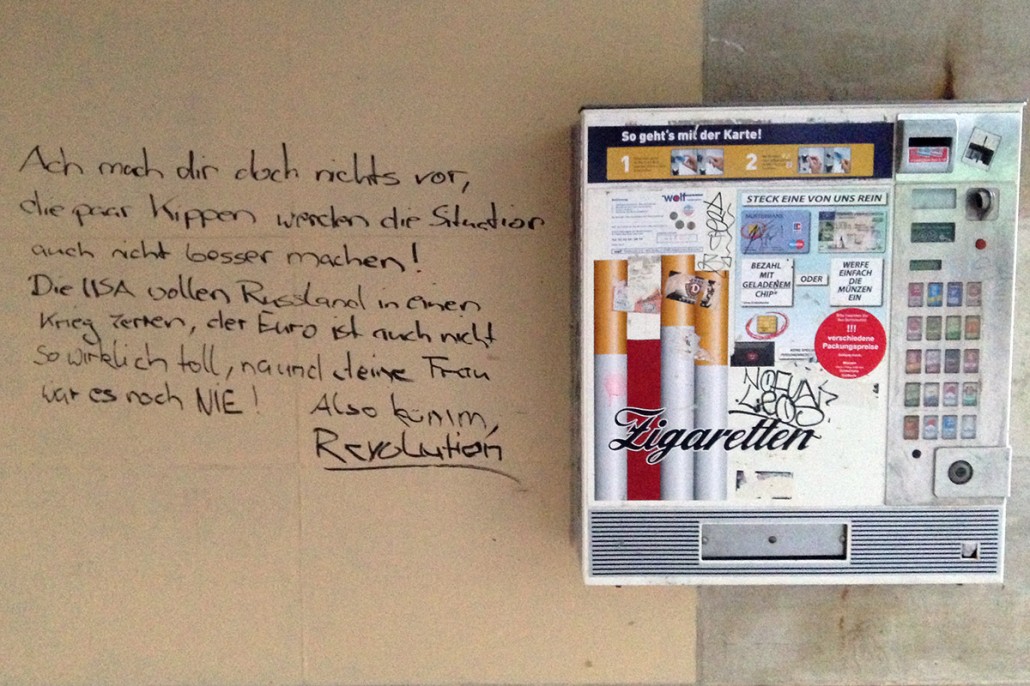 Ach mach dir doch nichts vor,
die paar Kippen werden die Situation
auch nicht besser machen!
Die USA wollen Russland in einen
Krieg zerren, der Euro ist auch nicht
so wirklich toll, na und deine Frau
war es noch NIE!
Also komm,
Revolution
So geht's mit der Karte!
1
2
wolf
STECK EINE VON UNS REIN
BEZAHL
MIT
GELADENEM
CHIP*
ODER
WERFE
EINFACH
DIE
MÜNZEN
EIN
!!!
verschiedene
Packungspreise
Zigaretten